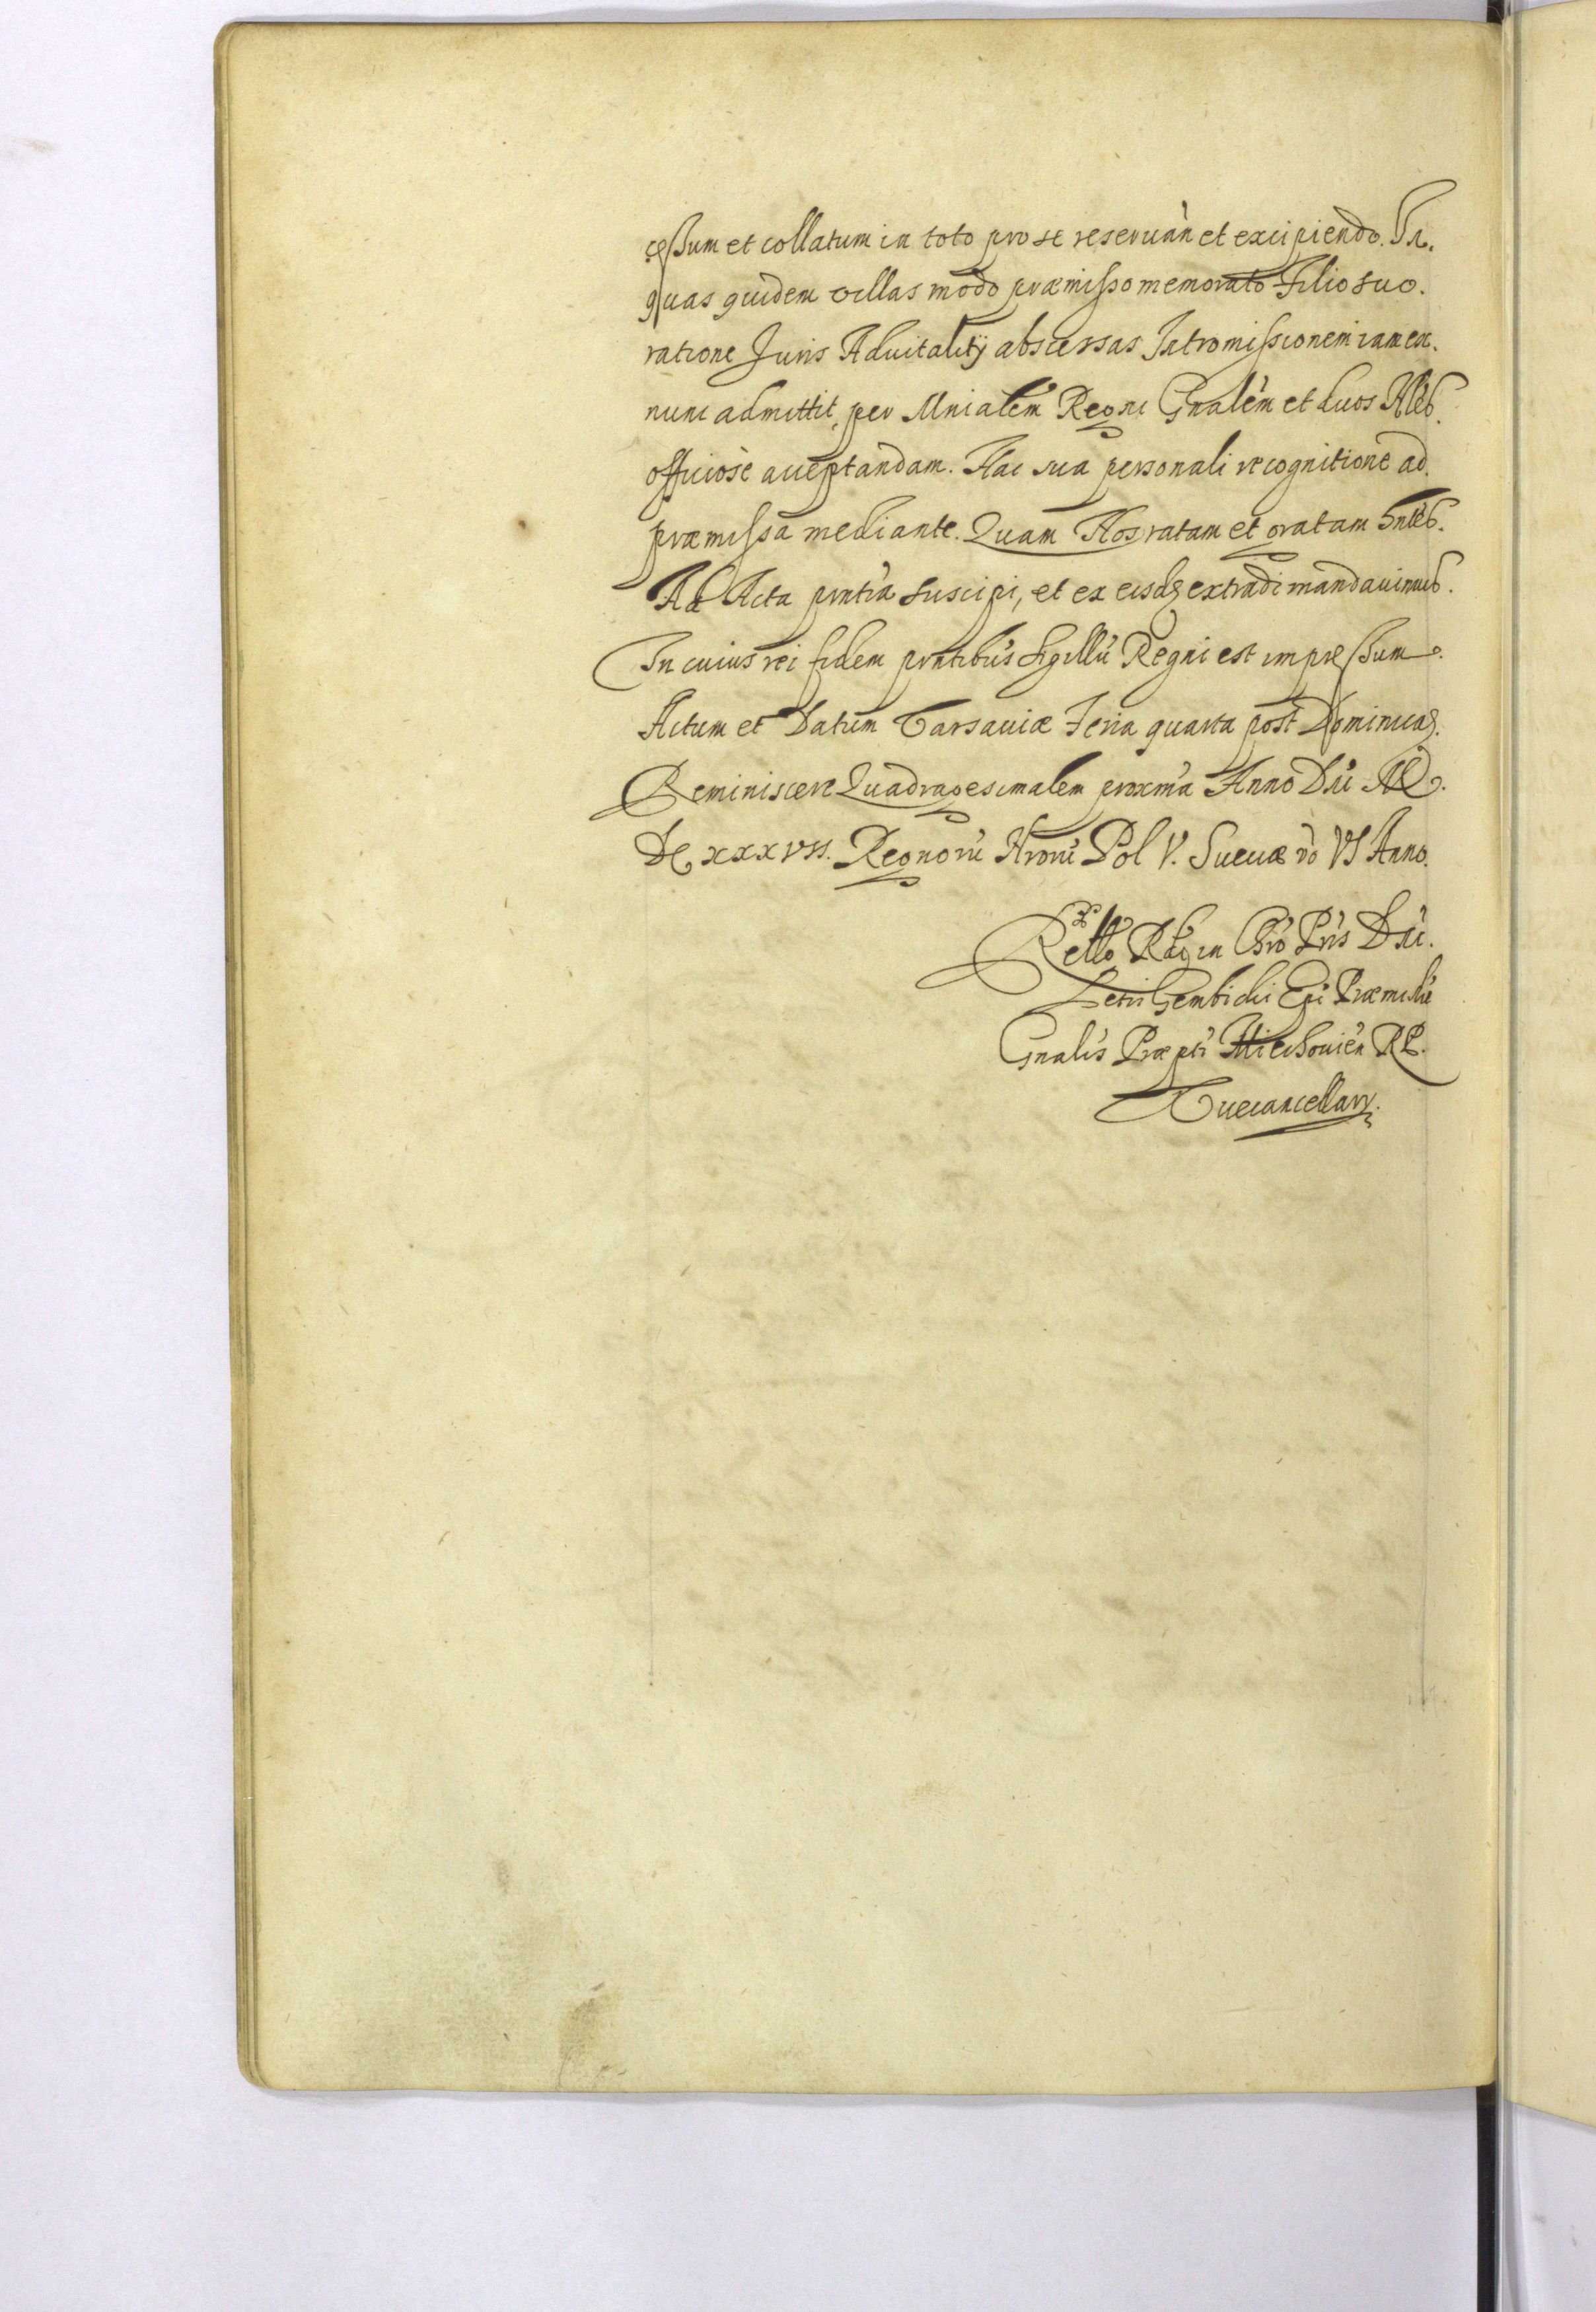 cessum et collatum in toto pro se reseruań et excipiendo. In
quas quidem villas modo præmisso memorato Filio suo.
ratione Juris Aduitalitÿ abscessas Intromissionem iam ex.
nunc admittit, per Mnialem Regni Gnalem et duos Nleb.
officiose acceptandam. Hac sua personali recognitione ad.
præmissa mediante. Quam Nos ratam et gratam
Ad Acta pntia suscipi, et ex eisdē extradi mandauimus.
In cuius rei fidem pntibus sigillū Regni est impressum.
Actum et Datum Varsauiæ Feria quarta post Dominicā.
Reminiscere Quadragesimalem proxima Anno Dñi M.
DC xxxvii. Regnorū Nrorū Pol V. Sueciæ vo VI Anno.
Rello Rdi in Chro Pris Dñi.
Petri Gembicki Epi Præmislie
Gnalis Præpti Miechouień RP.
Vicecancellary.